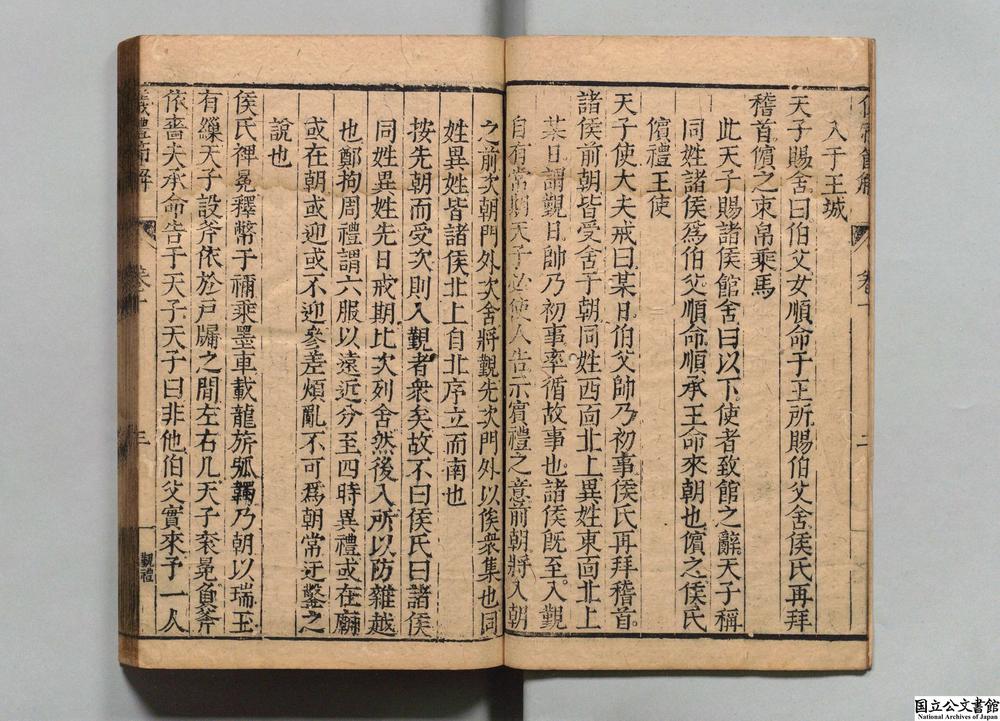 入于王城
天子賜舍曰伯父女順命于王所賜伯父舍侯氏再拜
稽首儐之束帛乘馬
此天子賜諸侯館舍曰以下使者致館之辭天子稱
同姓諸侯爲伯父順命順承王命來朝也儐之侯氏
儐禮王使
天子使大夫戒曰某日伯父帥乃初事侯氏再拜稽首
諸侯前朝皆受舍于朝同姓西面北上異姓東面北上
某日謂覲日帥乃初事率循故事也諸侯旣至入覲
自有常期天子必使人告示賓禮之意前朝將入朝
之前次朝門外次舍將覲先次門外以俟衆集也同
姓異姓皆諸侯北上自北序立而南也
按先朝而受次則入覲者衆矣故不曰侯氏曰諸侯
同姓異姓先日戒期比次列舍然後入所以防雜越
也鄭拘周禮謂六服以遠近分至四時異禮或在廟
或在朝或迎或不迎參差煩亂不可爲朝常迂鑿之
說也
侯氏裨冕釋幣于禰乘墨車載龍旂弧韣乃朝以瑞玉
有繅天子設斧依於戶牖之間左右几天子袞冕負斧
依嗇夫承命告于天子天子曰非他伯父實來予一人
儀禮節解
卷十
三
覲禮
卷十
二
国立公文書館
National Archives of Japan